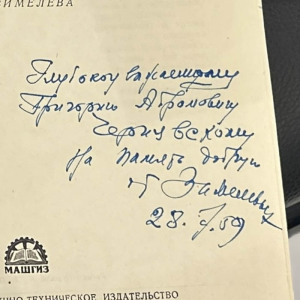 ИМЕЛЕВА
Глубокоуважаемому
Григорию Абрамовичу
на память добрую
28. 59
МАШГИЗ
НО-ТЕХНИЧЕСКОЕ ИЗДАТЕЛЬСТВО